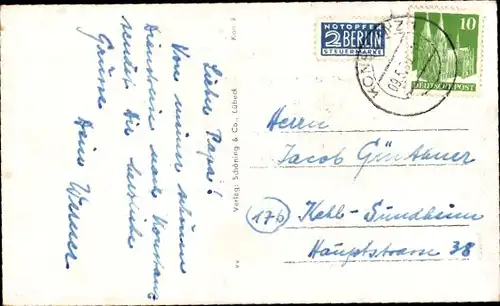 Lieber Papa!
Von meiner schönen
Dienstreise nach Konstanz
sendet Dir herzliche
Grüsse
Dein Werner
Verlag: Schöning & Co., Lübeck
Kon 2
NOTOPFER
2 BERLIN
STEUERMARKE
10
DEUTSCHE POST
Herrn
Jacob Güntauer
17b Kehl-Sundheim
Hauptstrasse 38